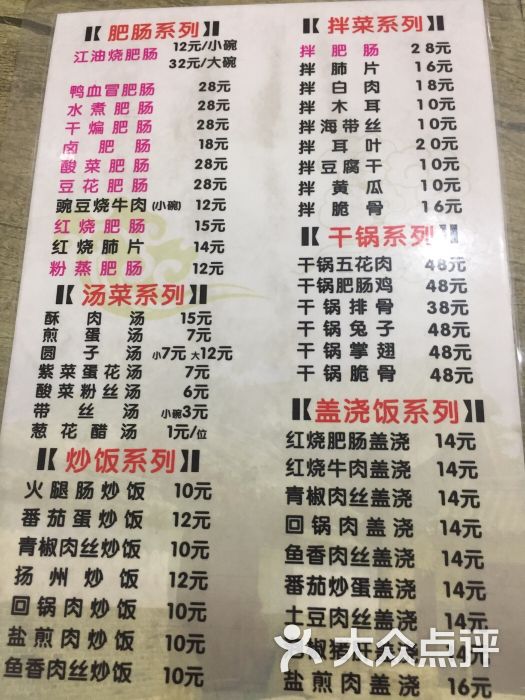 肥肠系列
江油烧肥肠 12元/小碗
32元/大碗
鸭血冒肥肠 28元
水煮肥肠 28元
干煸肥肠 28元
卤肥肠 18元
酸菜肥肠 28元
豆花肥肠 28元
豌豆烧牛肉(小碗) 12元
红烧肥肠 15元
红烧肺片 14元
粉蒸肥肠 12元
汤菜系列
酥肉汤 15元
煎蛋汤 7元
圆子汤 小7元 大12元
紫菜蛋花汤 7元
酸菜粉丝汤 6元
带丝汤 小碗3元
葱花醋汤 1元/位
炒饭系列
火腿肠炒饭 10元
番茄蛋炒饭 12元
青椒肉丝炒饭 10元
扬州炒饭 12元
回锅肉炒饭 10元
盐煎肉炒饭 10元
鱼香肉丝炒饭 10元
拌菜系列
拌肥肠 28元
拌肺片 16元
拌白肉 18元
拌木耳 10元
拌海带丝 10元
拌耳叶 20元
拌豆腐干 10元
拌黄瓜 10元
拌脆骨 16元
干锅系列
干锅五花肉 48元
干锅肥肠鸡 48元
干锅排骨 38元
干锅兔子 48元
干锅掌翅 48元
干锅脆骨 48元
盖浇饭系列
红烧肥肠盖浇 14元
红烧牛肉盖浇 14元
青椒肉丝盖浇 14元
回锅肉盖浇 14元
鱼香肉丝盖浇 14元
番茄炒蛋盖浇 14元
土豆肉丝盖浇 14元
椒猪肝盖浇
盐煎肉盖浇 16元
大众点评